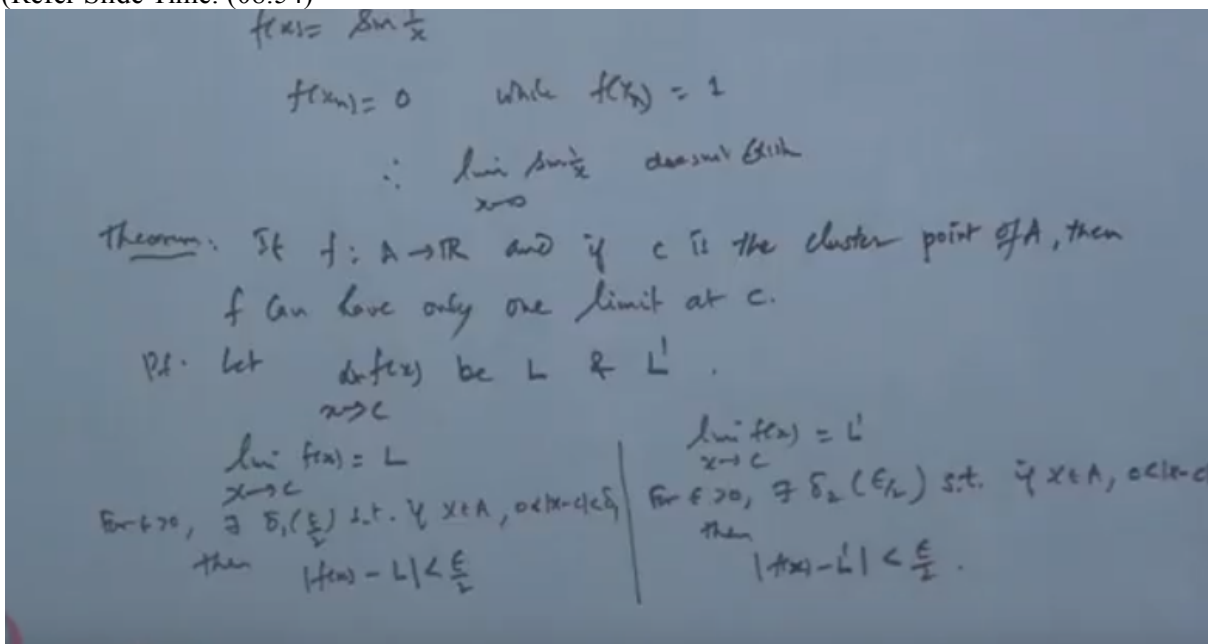 (Refer Slide Time: (08:54)
f(x) = Sin 1/x
f(xn) = 0 while f(yn) = 1
∴ lim Sin 1/x doesnot Exist
x→0
Theorem. If f: A → IR and if c is the cluster point of A, then
f Can have only one limit at c.
Pf. Let lt f(x) be L & L'.
x→c
lim f(x) = L
x→c
For ε>0, ∃ δ₁(ε/2) s.t. if x∈A, 0<|x-c|<δ₁
then |f(x) - L| < ε/2
lim f(x) = L'
x→c
For ε>0, ∃ δ₂(ε/2) s.t. if x∈A, 0<|x-c
then
|f(x) - L'| < ε/2.